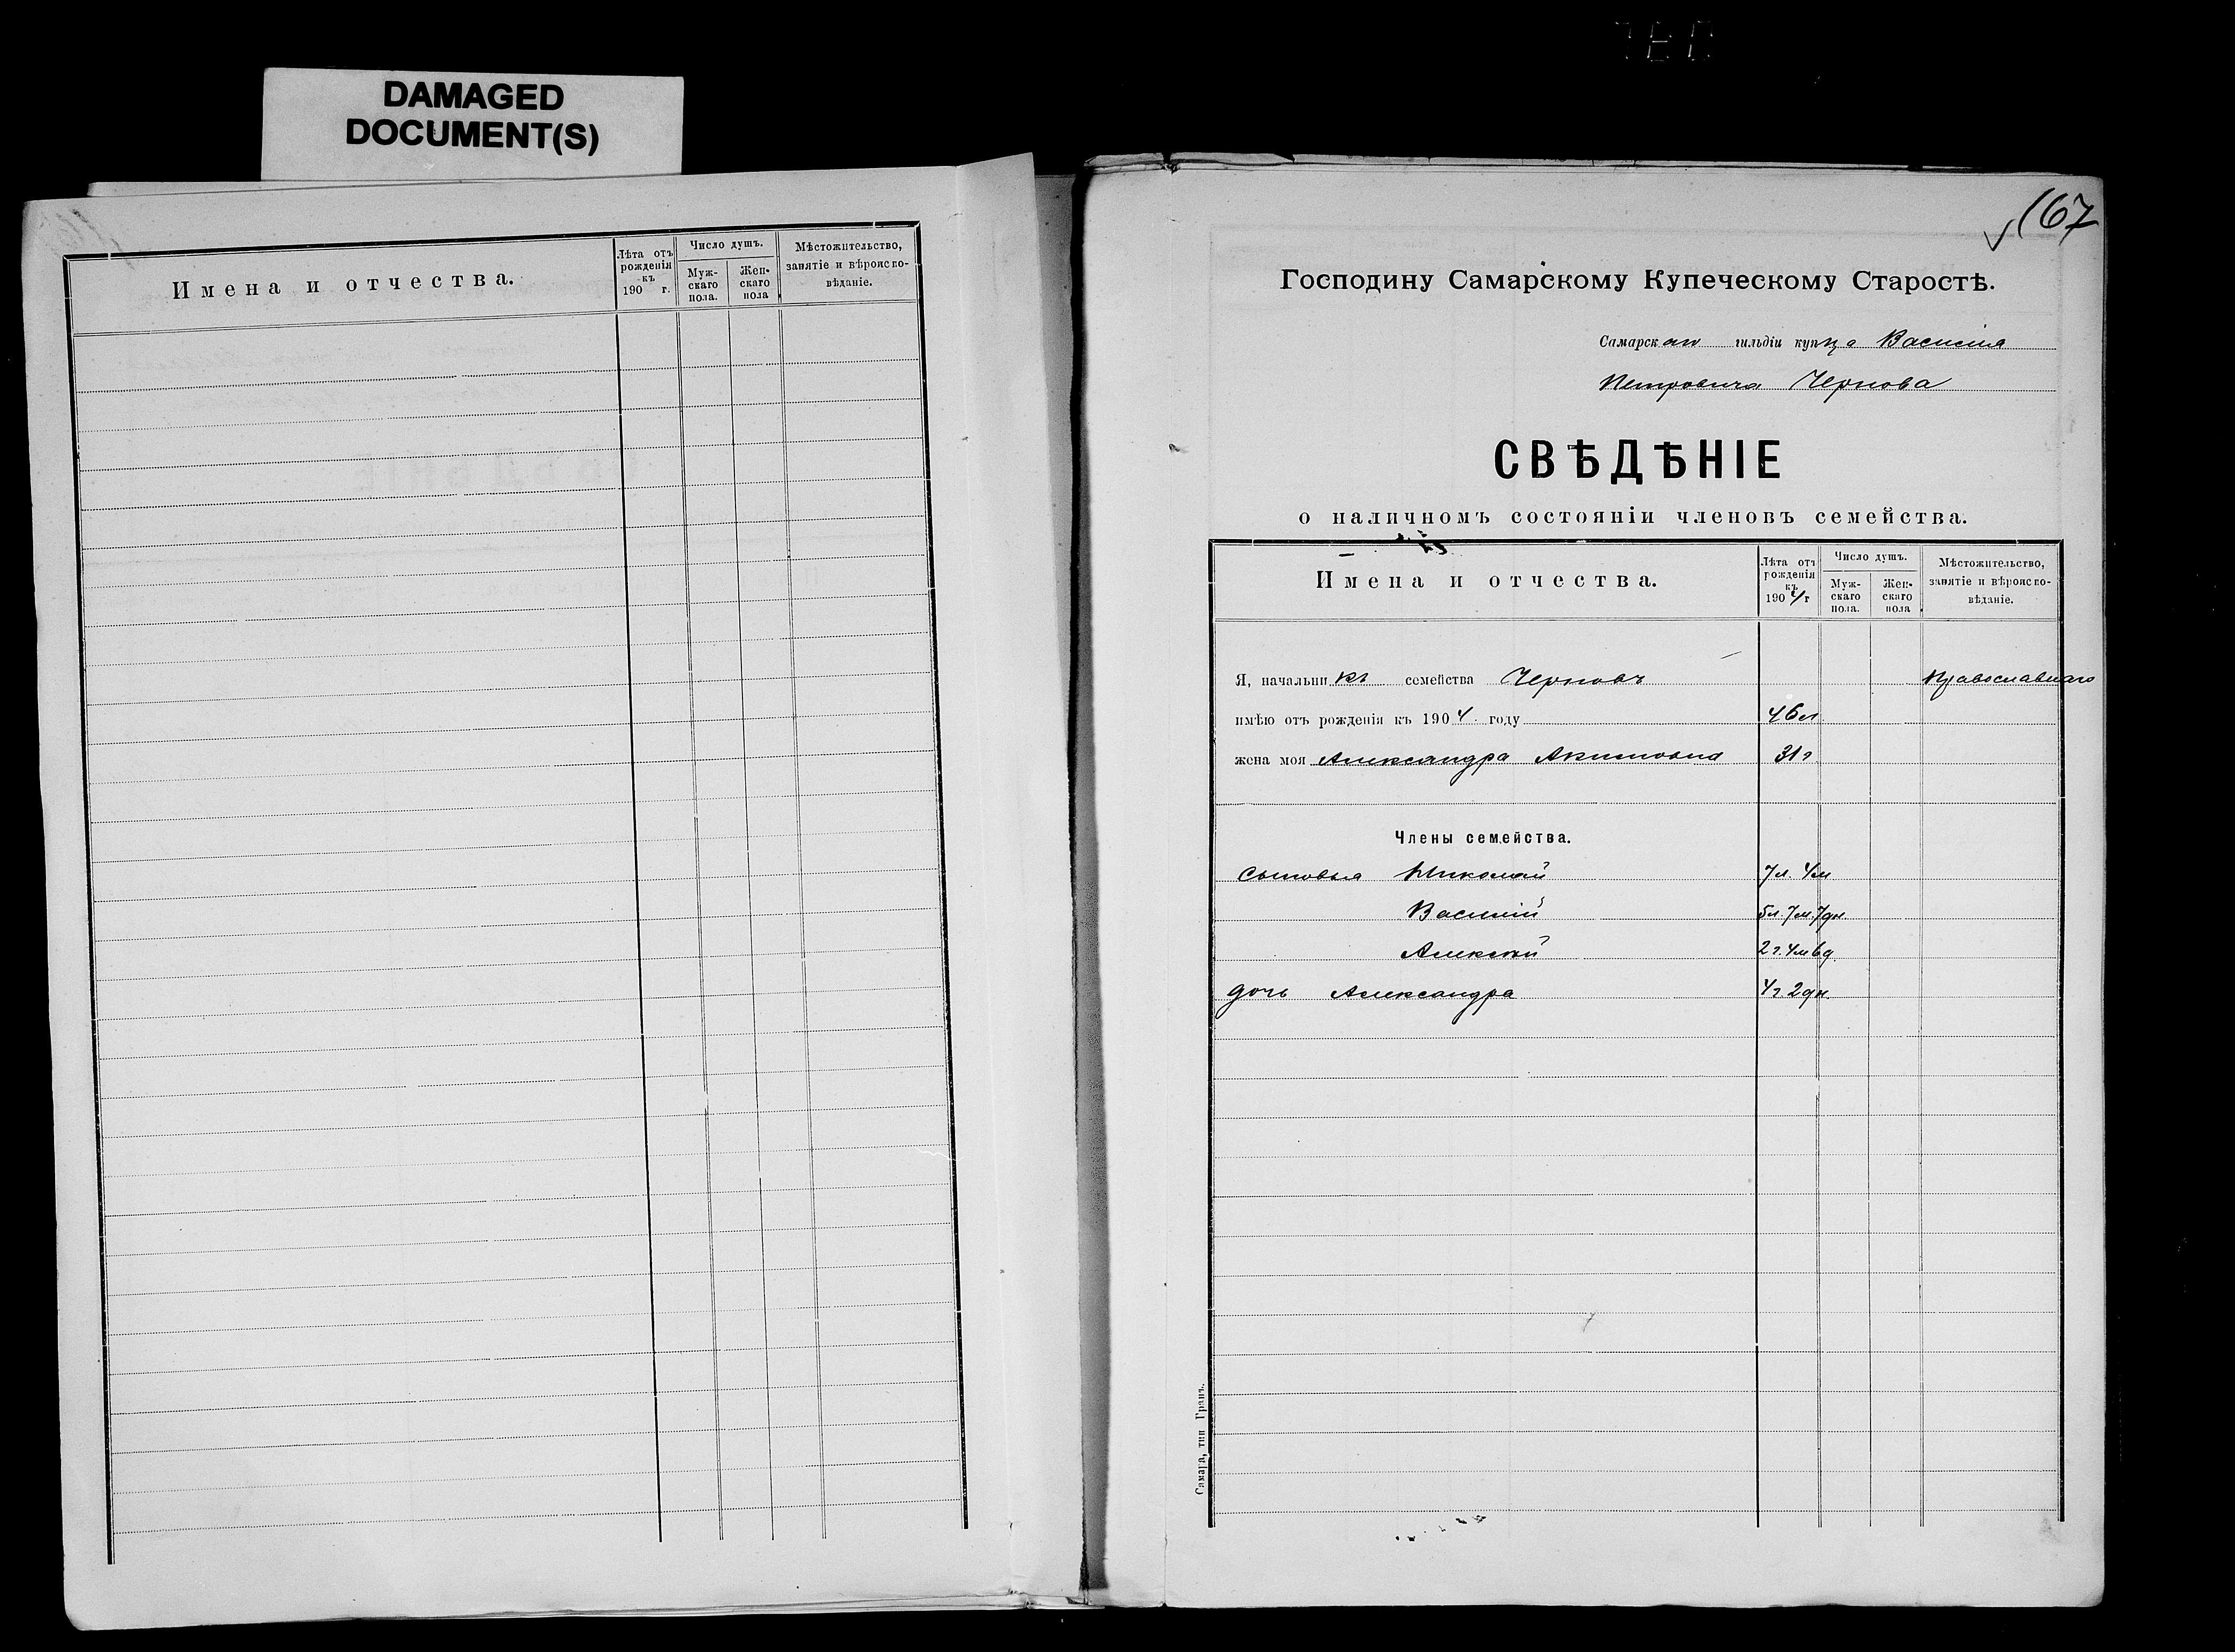 DAMAGED
DOCUMENT(S)
Имена и отчества.
Лѣта отъ рожденія къ 190 г.
Число душъ.
Мужскаго пола.
Женскаго пола
Мѣстожительство, занятіе и вѣроисповѣданіе.
167
Господину Самарскому Купеческому Старостѣ.
Самарск гильдіи купца Василія
Петровича Чернова
СВѢДѢНІЕ
о наличномъ состояніи членовъ семейства.
Имена и отчества.
Лѣта отъ рожденія къ 1904 г
Число душъ.
Мужскаго пола.
Женскаго пола
Мѣстожительство, занятіе и вѣроисповѣданіе.
Я, начальникъ семейства Черновъ Православнаго
имѣю отъ рожденія къ 1904 году 46 л
жена моя Александра Акимовна 31 г
Члены семейства.
Сыновья Николай 7 л. 4 м
Василій 5 л. 7 м. 7 дн.
Алексѣй 2 г. 4 м 6 д.
дочь Александра 4 г. 2 дн.
Самара, тип Гранъ.